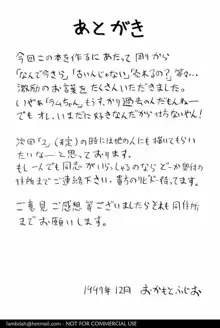 あとがき
今回この本を作るにあたって周りから
「なんで今さら」「古いんじゃない」「売れるの?」等々…
激励のお言葉をたくさんいただきました。
いやぁ「ラムちゃん」もうすっかり過去のんだもんねー
でも オレ、いまだに好きなんだから仕方ないやん!
次回「2」(未定)の時には他の人にも描いてもらい
たいなーと思っております。
もし一人でも同志がいらっしゃるのなら どーか奥付の
住所までご連絡下さい。貴方の
待ってます。
ご意見 ご感想 等ございましたらそれも同住所
までお願いします。
1999年12月 おかもとふじお
lambdah@hotmail.com FOLLOW LAMBDAH AT